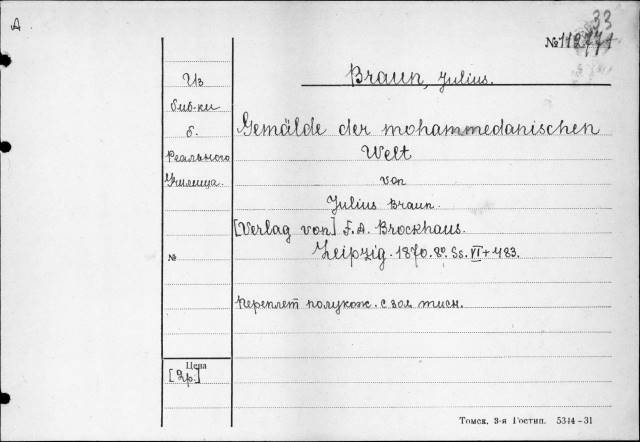 А
33
№
Braun, Julius.
Из
биб-ки
б.
Реального
Училища.
Gemälde der mohammedanischen
Welt
von
Julius Braun.
[Verlag von] F. A. Brockhaus.
Leipzig. 1870. 8º. Ss. VI + 483.
№
Переплет полукож. с зол. тисн.
Цена
[2р.]
Томск, 3-я Гостип. 5344-31